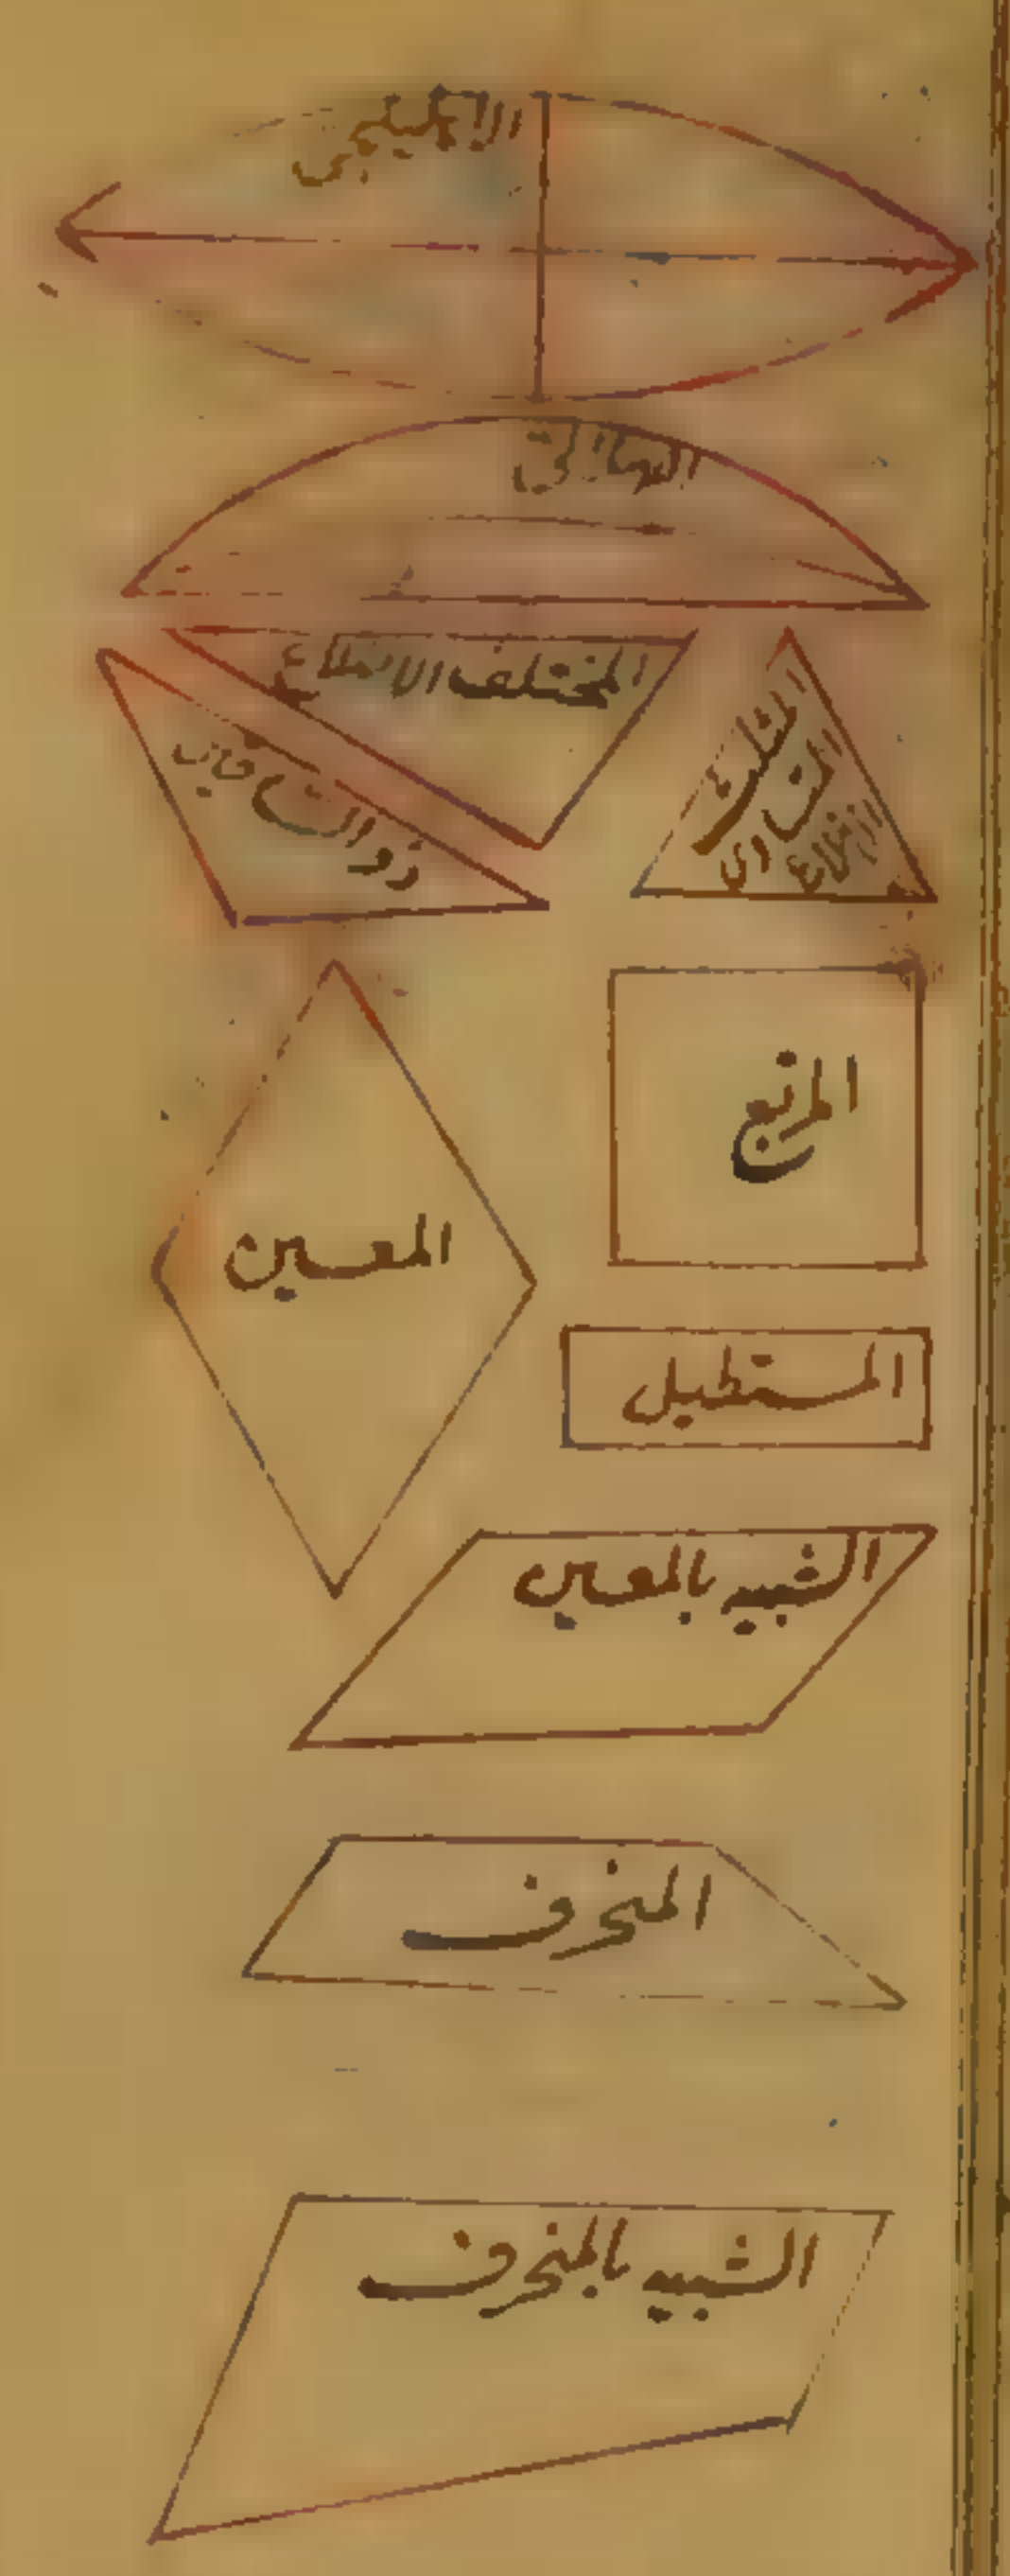 الاهليلجي
الهلالي
المختلف الاضلاع
المثلث
الاضلاع
ذو الساقين
المربع
المعين
المستطيل
الشبيه بالمعين
المنحرف
الشبيه بالمنحرف